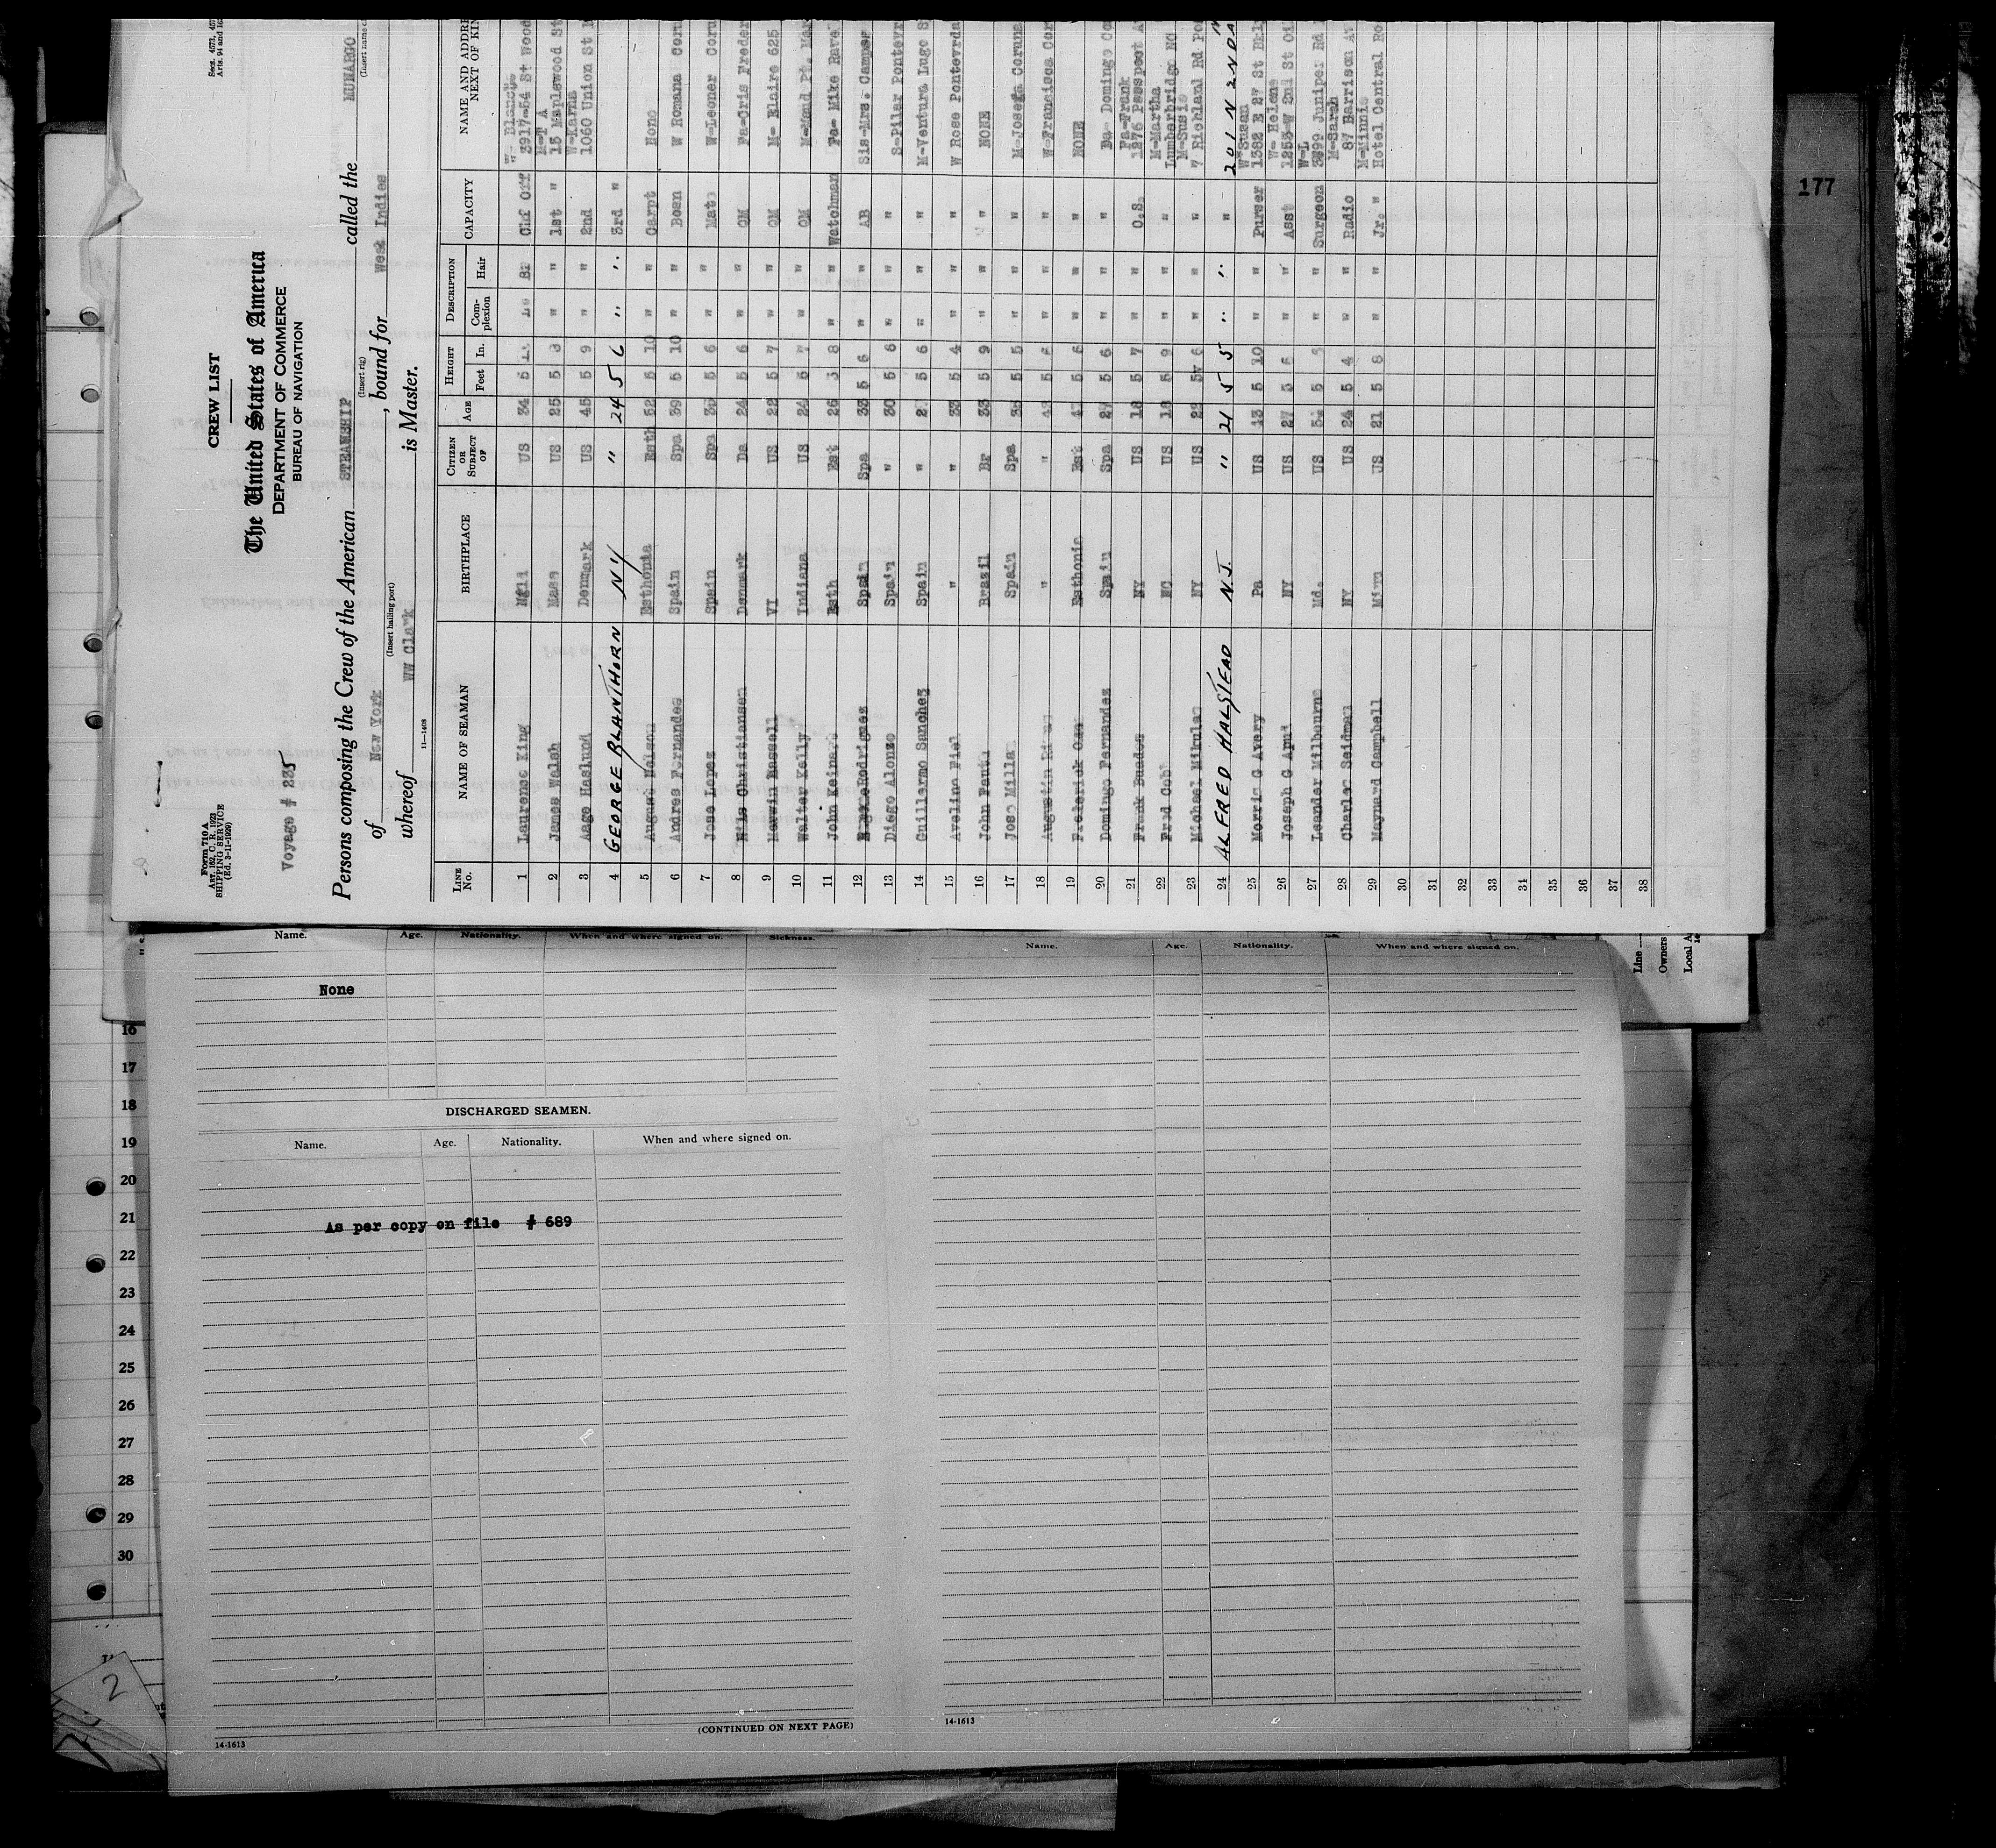 Form 710 A
ART. 162, C. R. 1923
SHIPPING SERVICE
(Ed. 3-11-1929)
CREW LIST
Secs. 4573, 457
Arts. 94 and 162
Voyage # 235
The United States of America
DEPARTMENT OF COMMERCE
BUREAU OF NAVIGATION
Persons composing the Crew of the American STEAMSHIP called the MUNARGO
(Insert rig) (Insert name o
of New York, bound for West Indies
(Insert hailing port)
whereof WW Clark is Master.
11-1408
LINE No. NAME OF SEAMAN BIRTHPLACE CITIZEN OR SUBJECT OF AGE HEIGHT Feet In. DESCRIPTION Complexion Hair CAPACITY NAME AND ADDRE NEXT OF KIN
1 Laurence King US 34 5 11 Br Chf Off W- Blanche 3917-54 St Wood
2 James Walsh Mass US 25 5 " " 1st " M-T A 15 Maplewood St
3 Aage Haslund Denmark US 45 5 9 " " 2nd W-Karna 1060 Union St
4 GEORGE BLANTHORN NY " 24 5 6 " " 3rd "
5 August Nelson Esthonia Esth 52 5 10 " " Carpt None
6 Andres Fernandes Spain Spa 39 5 10 " " Bosn W Romana Coru
7 Jose Lopez Spain Spa 5 6 " " Mate W-Leoner Coru
8 Nils Christiansen Denmark Da 24 5 6 " " QM Fa-Cris Freder
9 VI US 22 5 7 " " QM M- Elaire 625
10 Walter Kelly Indiana US 24 5 7 " " QM
11 John Esth Est 26 8 " " Watchman Fa- Mike Rave
12 Rodriguez Spain Spa 33 5 6 " " AB Sis-Mrs. Campos
13 Diego Alonzo Spain " 30 5 " " " S-Pilar Pontevr
14 Guillermo Sanchez Spain " 5 6 " " " M-Ventura Lugo S
15 Avelino " " 33 5 4 " " " W Rose Pontevrda
16 John Brazil Br 33 5 9 " " " NONE
17 Jose Milla Spain Spa 5 5 " " " M-Josefa Coruna
18 Augustin " " 5 " " " W-Francisca Cor
19 Frederick Esthonia Est 5 6 " " " NONE
20 Domingo Fernandez Spain Spa 5 6 " " " Domingo Co
21 Frank NY US 18 5 7 " " O.S. Fa-Frank
22 Fred NC US 18 5 9 " " " M-Martha Lumberbridge NC
23 Michael NY US 22 5 6 " " " M-Susie 7 Richland Rd Po
24 ALFRED HALSTEAD N.J. " 21 5 5 " " " 201 N 2ND
25 Morris G Avery Pa US 5 10 " " Purser W-Susan 1382 E 27 St Bkly
26 Joseph G NY US 27 5 " " Asst W- Helene 1253 W 2nd St
27 Leander Milburn Md. US 5 " " Surgeon W-L 3899 Juniper Rd
28 Charles Seidman NY US 24 5 4 " " Radio M-Sarah 87 Harrison Av
29 Maynard Campbell Minn US 21 5 8 " " Jr. " M-Minnie Hotel Central Ro
30
31
32
33
34
35
36
37
38
177
Name. Age. Nationality. When and where signed on. Sickness.
None
DISCHARGED SEAMEN.
Name. Age. Nationality. When and where signed on.
As per copy on file # 689
(CONTINUED ON NEXT PAGE)
14-1613
Name. Age. Nationality. When and where signed on.
14-1613
Line
Owners
Local A
16
17
18
19
20
21
22
23
24
25
26
27
28
29
30
2